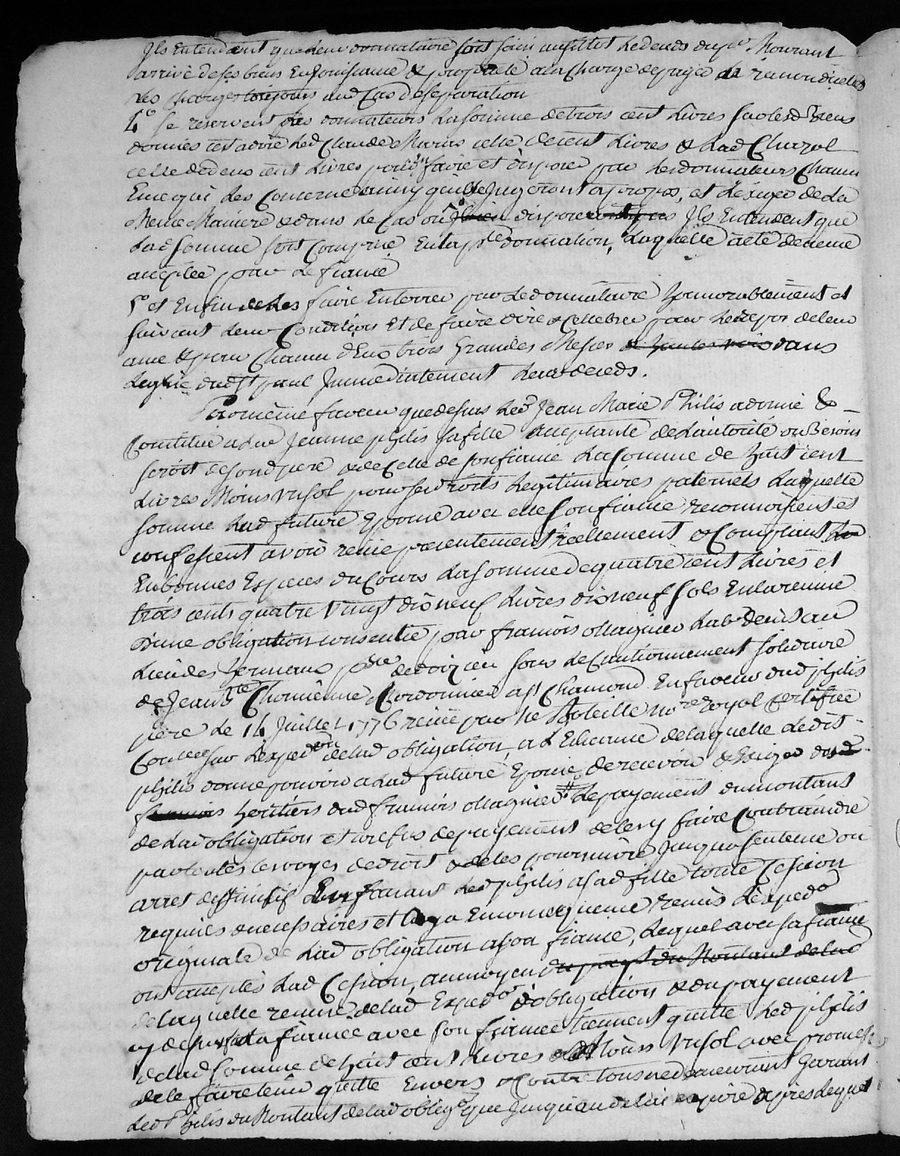 Ils Entendent que leur donnataire soit saisi aussitot le deceds du pr. Mourant
arrivé de ses biens En jouissance & proprieté a la charge de payer
les charges aud Cas de separation
4° se reservent les donnateurs la somme de trois cent livres sur les Biens
donnés cet a dire led Claude Marias celle de cent livres & lad Chazol
celle de deux cent livres pour En faire et disposer par les donnateurs Chacun
En ce qui les Concerne ainsy qu'ils Jugeront apropos, et l'exiger de la
Meme Maniere & dans le Cas ou disposé Ils Entendent que
lad somme soit Comprise En la pte donnation, laquelle a eté de meme
acceptée par le fiancé
5° et Enfin de les faire Enterrer par le donnataire honnorablement et
suivant leur Condition Et de faire dire & Cellebrer pour le repos de leur
ame & pour Chacun d'Eux trois Grandes Messes dans
leglise dud St paul Immediatement leur deceds.
En meme faveur que dessus led Jean Marie Philis a donné &
Constitué a lad Jeanne philis sa fille acceptante de l'autorité ou Besoin
seroit de sond pere & de Celle de son fiancé La somme de huit cent
livres Moins Un sol pour ses droits legitimaires paternels Laquelle
somme lad future Epouse avec elle son fiancé reconnoissent et
confessent avoir reçue presentement reellement & Comptant
En bonnes Especes du Cours la somme de quatre cent livres et
trois cents quatre vingt dix neuf livres dix neuf sols En la remise
d'une obligation consentie par francois Magnien lab. demt au
lieu des Vernaux psse de doizieu sous le Cautionnement solidaire
de Jean Bte Chomienne Cordonnier a St Chamond En faveur dud philis
pere le 14 Juillet 1776 reçüe par Me Boleille nore royal
Conlee sur l'expedon de lad obligation a l'Echeance de laquelle ledit
philis donne pouvoir a lad future Epouse de recevoir & Exiger des
heritiers dud francois Magnien le payement du montant
de lad obligation et a refus de payement de les y faire Contraindre
par toutes les voyes de droit & de les poursuivre Jusqua sentence ou
arret deffinitif En faisant led philis a sad fille toute Cession
requises & necessaires et luy a En consequence remis l'expedon
originale de lad obligation a son fiancé, lequel avec sa fiancée
ont accepté lad Cession, au moyen du payt du Montant de lad
de laquelle remise de lad Expedon d'obligation & du payement
cy dessus lad fiancée avec son fiancé tiennent quitte led philis
de lad somme de huit cent livres Moins Un sol avec promesse
de le faire tenir quitte Envers & Contre tous ne demeurant Garant
led Philis du Montant de lad oblige. que Jusqu'au delai expiré apres lequel